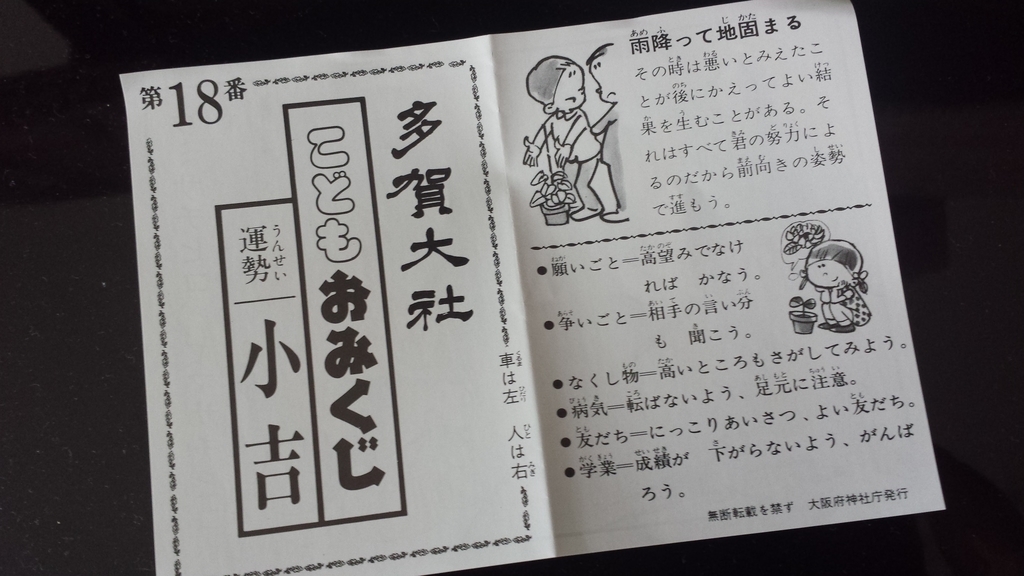 第18番
多賀大社
こどもおみくじ
運勢 小吉
車は左 人は右
雨降って地固まる
その時は悪いとみえたこ
とが後にかえってよい結
果を生むことがある。そ
れはすべて君の努力によ
るのだから前向きの姿勢
で進もう。
●願いごと=高望みでなけ
れば かなう。
●争いごと=相手の言い分
も 聞こう。
●なくし物=高いところもさがしてみよう。
●病気=転ばないよう、足元に注意。
●友だち=にっこりあいさつ、よい友だち。
●学業=成績が 下がらないよう、がんば
ろう。
無断転載を禁ず 大阪府神社庁発行